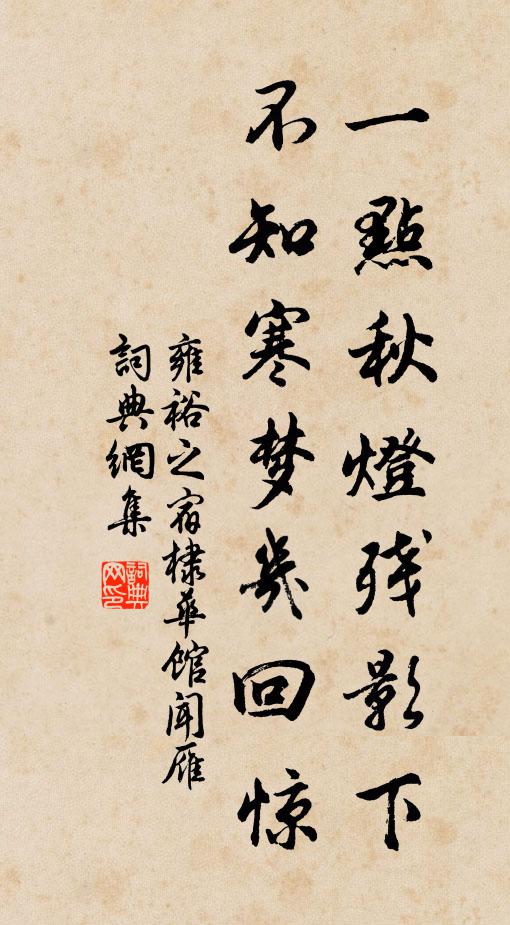 一點秋燈残影下
不知寒梦幾回惊
雍裕之宿棣華館闻雁
詞典網集
詞典网印